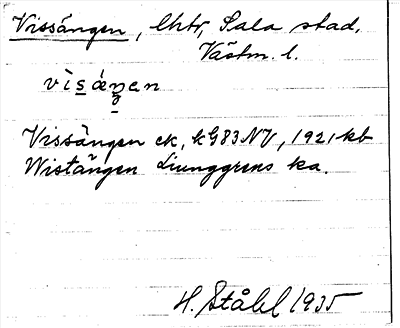 Vissängen, lhtr, Sala stad,
Västm. l.
Vissängen ek, kG83NV, 1921 kb
Wistängen Ljunggrens ka.
H. Ståhl 1935